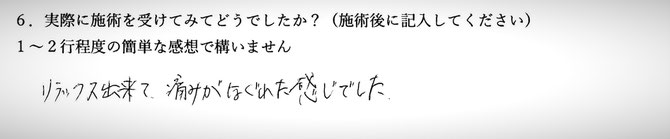 ６．実際に施術を受けてみてどうでしたか？（施術後に記入してください）
１～２行程度の簡単な感想で構いません
リラックス出来て、痛みがほぐれた感じでした。